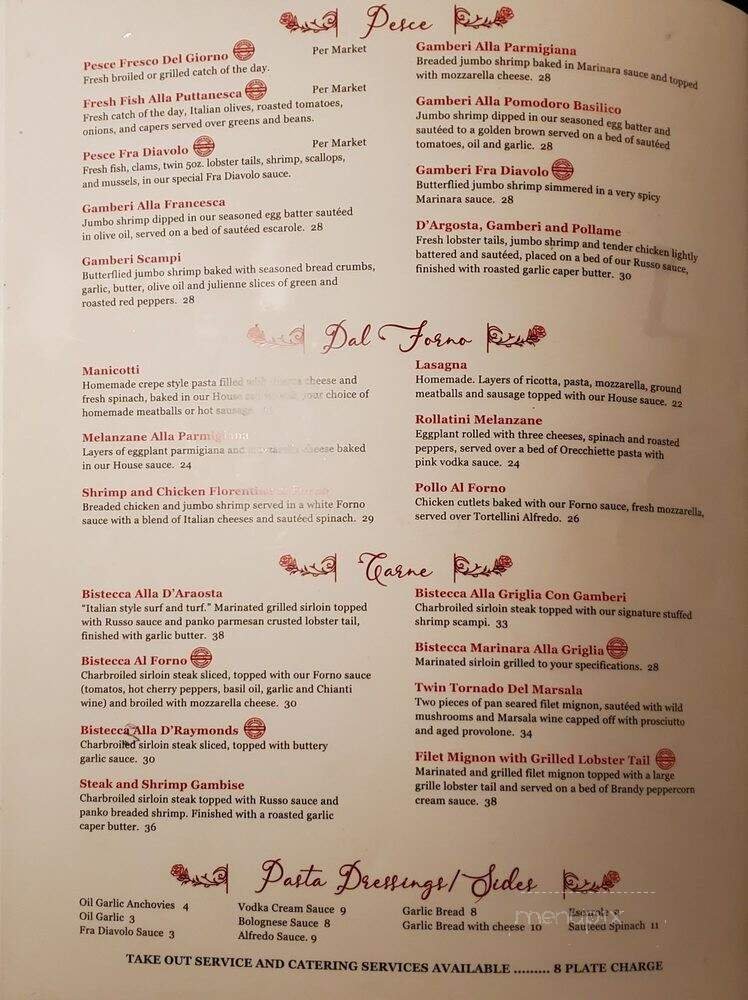 Pesce
Pesce Fresco Del Giorno Per Market
Fresh broiled or grilled catch of the day.
Fresh Fish Alla Puttanesca Per Market
Fresh catch of the day, Italian olives, roasted tomatoes,
onions, and capers served over greens and beans.
Pesce Fra Diavolo Per Market
Fresh fish, clams, twin 5oz. lobster tails, shrimp, scallops,
and mussels, in our special Fra Diavolo sauce.
Gamberi Alla Francesca
Jumbo shrimp dipped in our seasoned egg batter sautéed
in olive oil, served on a bed of sautéed escarole. 28
Gamberi Scampi
Butterflied jumbo shrimp baked with seasoned bread crumbs,
garlic, butter, olive oil and julienne slices of green and
roasted red peppers. 28
Gamberi Alla Parmigiana
Breaded jumbo shrimp baked in Marinara sauce and topped
with mozzarella cheese. 28
Gamberi Alla Pomodoro Basilico
Jumbo shrimp dipped in our seasoned egg batter and
sautéed to a golden brown served on a bed of sautéed
tomatoes, oil and garlic. 28
Gamberi Fra Diavolo
Butterflied jumbo shrimp simmered in a very spicy
Marinara sauce. 28
D'Argosta, Gamberi and Pollame
Fresh lobster tails, jumbo shrimp and tender chicken lightly
battered and sautéed, placed on a bed of our Russo sauce,
finished with roasted garlic caper butter. 30
Dal Forno
Manicotti
Homemade crepe style pasta filled with cheese and
fresh spinach, baked in our House your choice of
homemade meatballs or hot sausage.
Melanzane Alla Parmigiana
Layers of eggplant parmigiana and mozzarella cheese baked
in our House sauce. 24
Shrimp and Chicken Florentine Forno
Breaded chicken and jumbo shrimp served in a white Forno
sauce with a blend of Italian cheeses and sautéed spinach. 29
Lasagna
Homemade. Layers of ricotta, pasta, mozzarella, ground
meatballs and sausage topped with our House sauce. 22
Rollatini Melanzane
Eggplant rolled with three cheeses, spinach and roasted
peppers, served over a bed of Orecchiette pasta with
pink vodka sauce. 24
Pollo Al Forno
Chicken cutlets baked with our Forno sauce, fresh mozzarella,
served over Tortellini Alfredo. 26
Carne
Bistecca Alla D'Araosta
"Italian style surf and turf." Marinated grilled sirloin topped
with Russo sauce and panko parmesan crusted lobster tail,
finished with garlic butter. 38
Bistecca Al Forno
Charbroiled sirloin steak sliced, topped with our Forno sauce
(tomatos, hot cherry peppers, basil oil, garlic and Chianti
wine) and broiled with mozzarella cheese. 30
Bistecca Alla D'Raymonds
Charbroiled sirloin steak sliced, topped with buttery
garlic sauce. 30
Steak and Shrimp Gambise
Charbroiled sirloin steak topped with Russo sauce and
panko breaded shrimp. Finished with a roasted garlic
caper butter. 36
Bistecca Alla Griglia Con Gamberi
Charbroiled sirloin steak topped with our signature stuffed
shrimp scampi. 33
Bistecca Marinara Alla Griglia
Marinated sirloin grilled to your specifications. 28
Twin Tornado Del Marsala
Two pieces of pan seared filet mignon, sautéed with wild
mushrooms and Marsala wine capped off with prosciutto
and aged provolone. 34
Filet Mignon with Grilled Lobster Tail
Marinated and grilled filet mignon topped with a large
grille lobster tail and served on a bed of Brandy peppercorn
cream sauce. 38
Pasta Dressings/Sides
Oil Garlic Anchovies 4
Oil Garlic 3
Fra Diavolo Sauce 3
Vodka Cream Sauce 9
Bolognese Sauce 8
Alfredo Sauce. 9
Garlic Bread 8
Garlic Bread with cheese 10
Sautéed Spinach 11
menupix
TAKE OUT SERVICE AND CATERING SERVICES AVAILABLE ......... 8 PLATE CHARGE